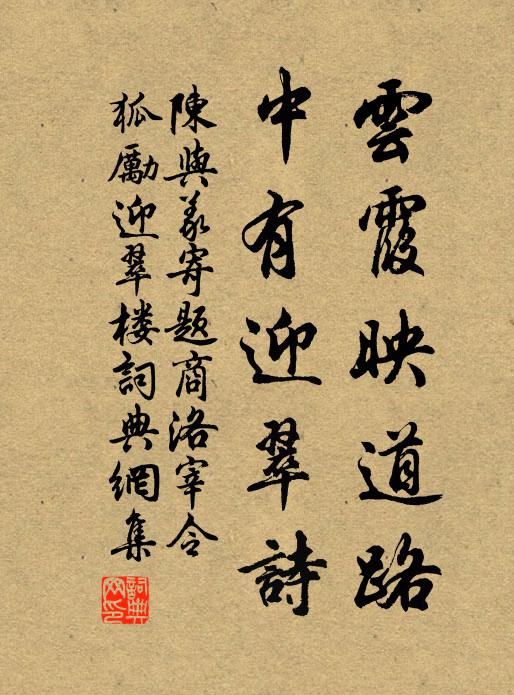 雲霞映道路
中有迎翠詩
陳與義寄題商洛宰令
狐勵迎翠樓詞典網集
詞典网印